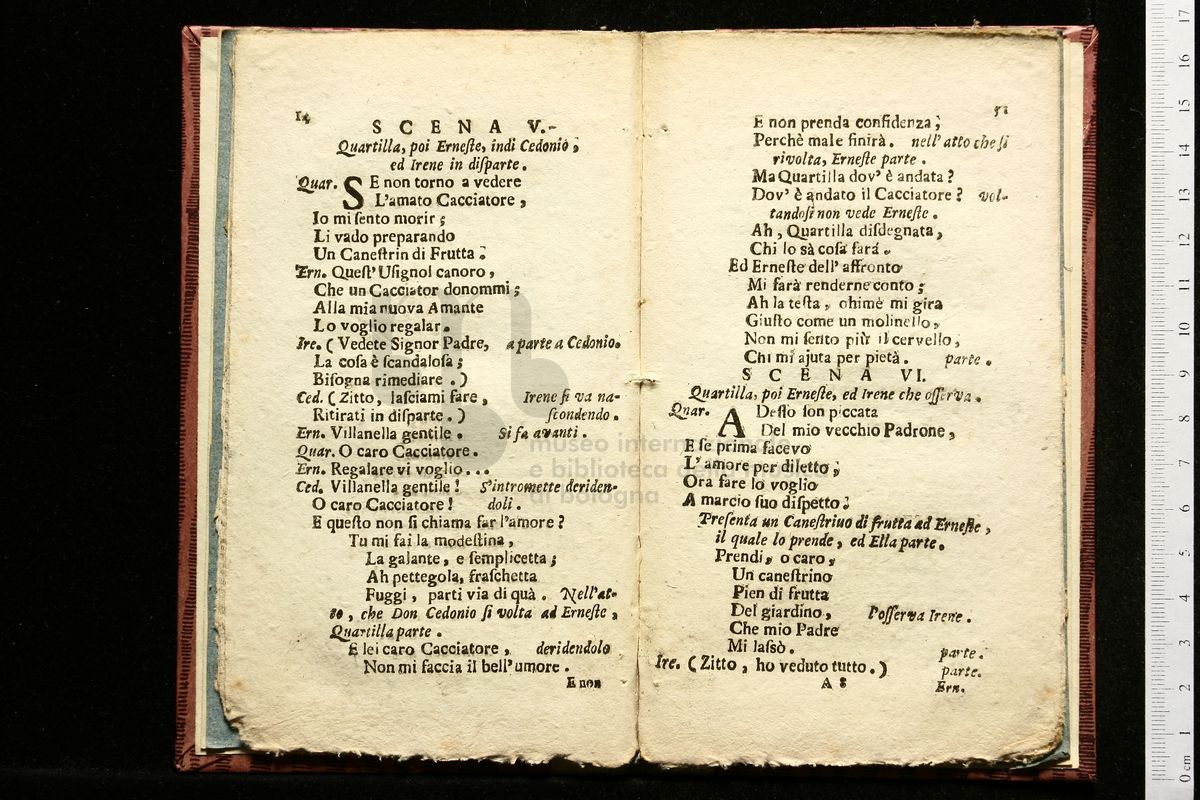 14
SCENA V.
Quartilla, poi Erneſte, indi Cedonio;
ed Irene in diſparte.
Quar. SE non torno a vedere
L'amato Cacciatore,
Io mi ſento morir;
Li vado preparando
Un Caneſtrin di Frutta.
Ern. Queſt' Uſignol canoro,
Che un Cacciator donommi;
Alla mia nuova Amante
Lo voglio regalar.
Ire. ( Vedete Signor Padre, a parte a Cedonio.
La coſa è ſcandaloſa;
Biſogna rimediare .)
Ced. ( Zitto, laſciami fare, Irene ſi va na-
Ritirati in diſparte. ) ſcondendo.
Ern. Villanella gentile. Si fa avanti.
Quar. O caro Cacciatore.
Ern. Regalare vi voglio...
Ced. Villanella gentile! S'intromette deriden-
O caro Cacciatore! doli.
E queſto non ſi chiama far l'amore?
Tu mi fai la modeſtina,
La galante, e ſemplicetta;
Ah pettegola, fraſchetta
Fuggi, parti via di quà. Nell'at-
to, che Don Cedonio ſi volta ad Erneſte,
Quartilla parte.
E lei caro Cacciatore, deridendolo
Non mi faccia il bell' umore.
E non
51
E non prenda confidenza;
Perchè male finirà. nell' atto che ſi
rivolta, Erneſte parte.
Ma Quartilla dov' è andata?
Dov' è andato il Cacciatore? vol-
tandoſi non vede Erneſte.
Ah, Quartilla diſdegnata,
Chi lo sà coſa farà.
Ed Erneſte dell' affronto
Mi farà renderne conto;
Ah la teſta, ohimè mi gira
Giuſto come un molinello,
Non mi ſento più il cervello,
Chi mi ajuta per pietà. parte.
SCENA VI.
Quartilla, poi Erneſte, ed Irene che oſſerva.
Quar. ADeſſo ſon piccata
Del mio vecchio Padrone,
E ſe prima facevo
L'amore per diletto;
Ora fare lo voglio
A marcio ſuo diſpetto:
Preſenta un Caneſtriuo di frutta ad Erneſte,
il quale lo prende, ed Ella parte.
Prendi, o caro,
Un caneſtrino
Pien di frutta
Del giardino, l'oſſerva Irene.
Che mio Padre
Mi laſsò. parte.
Ire. ( Zitto, ho veduto tutto. ) parte.
A 8 Ern.
museo internazionale
e biblioteca della musica
di bologna